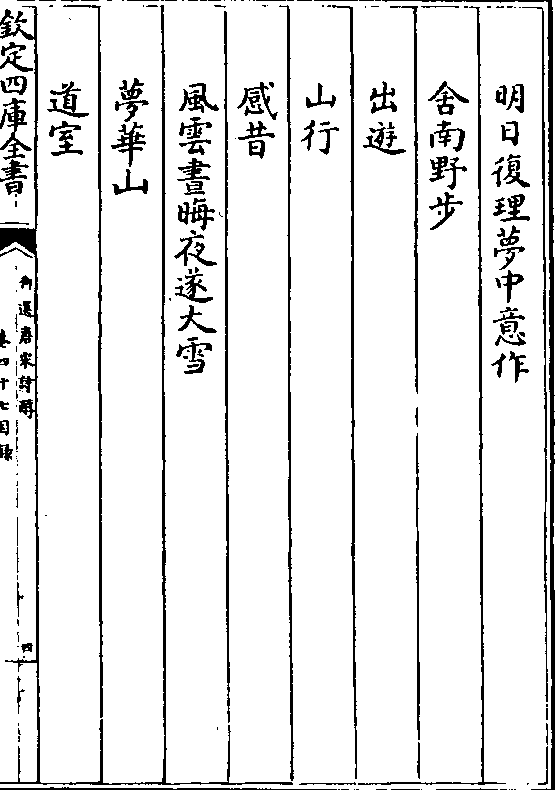 明日復理夢中意作
舍南野步
出遊
山行
感昔
風雲晝晦夜遂大雪
夢華山
道室
欽定四庫全書
御選唐宋詩醇
卷四十七目錄
四